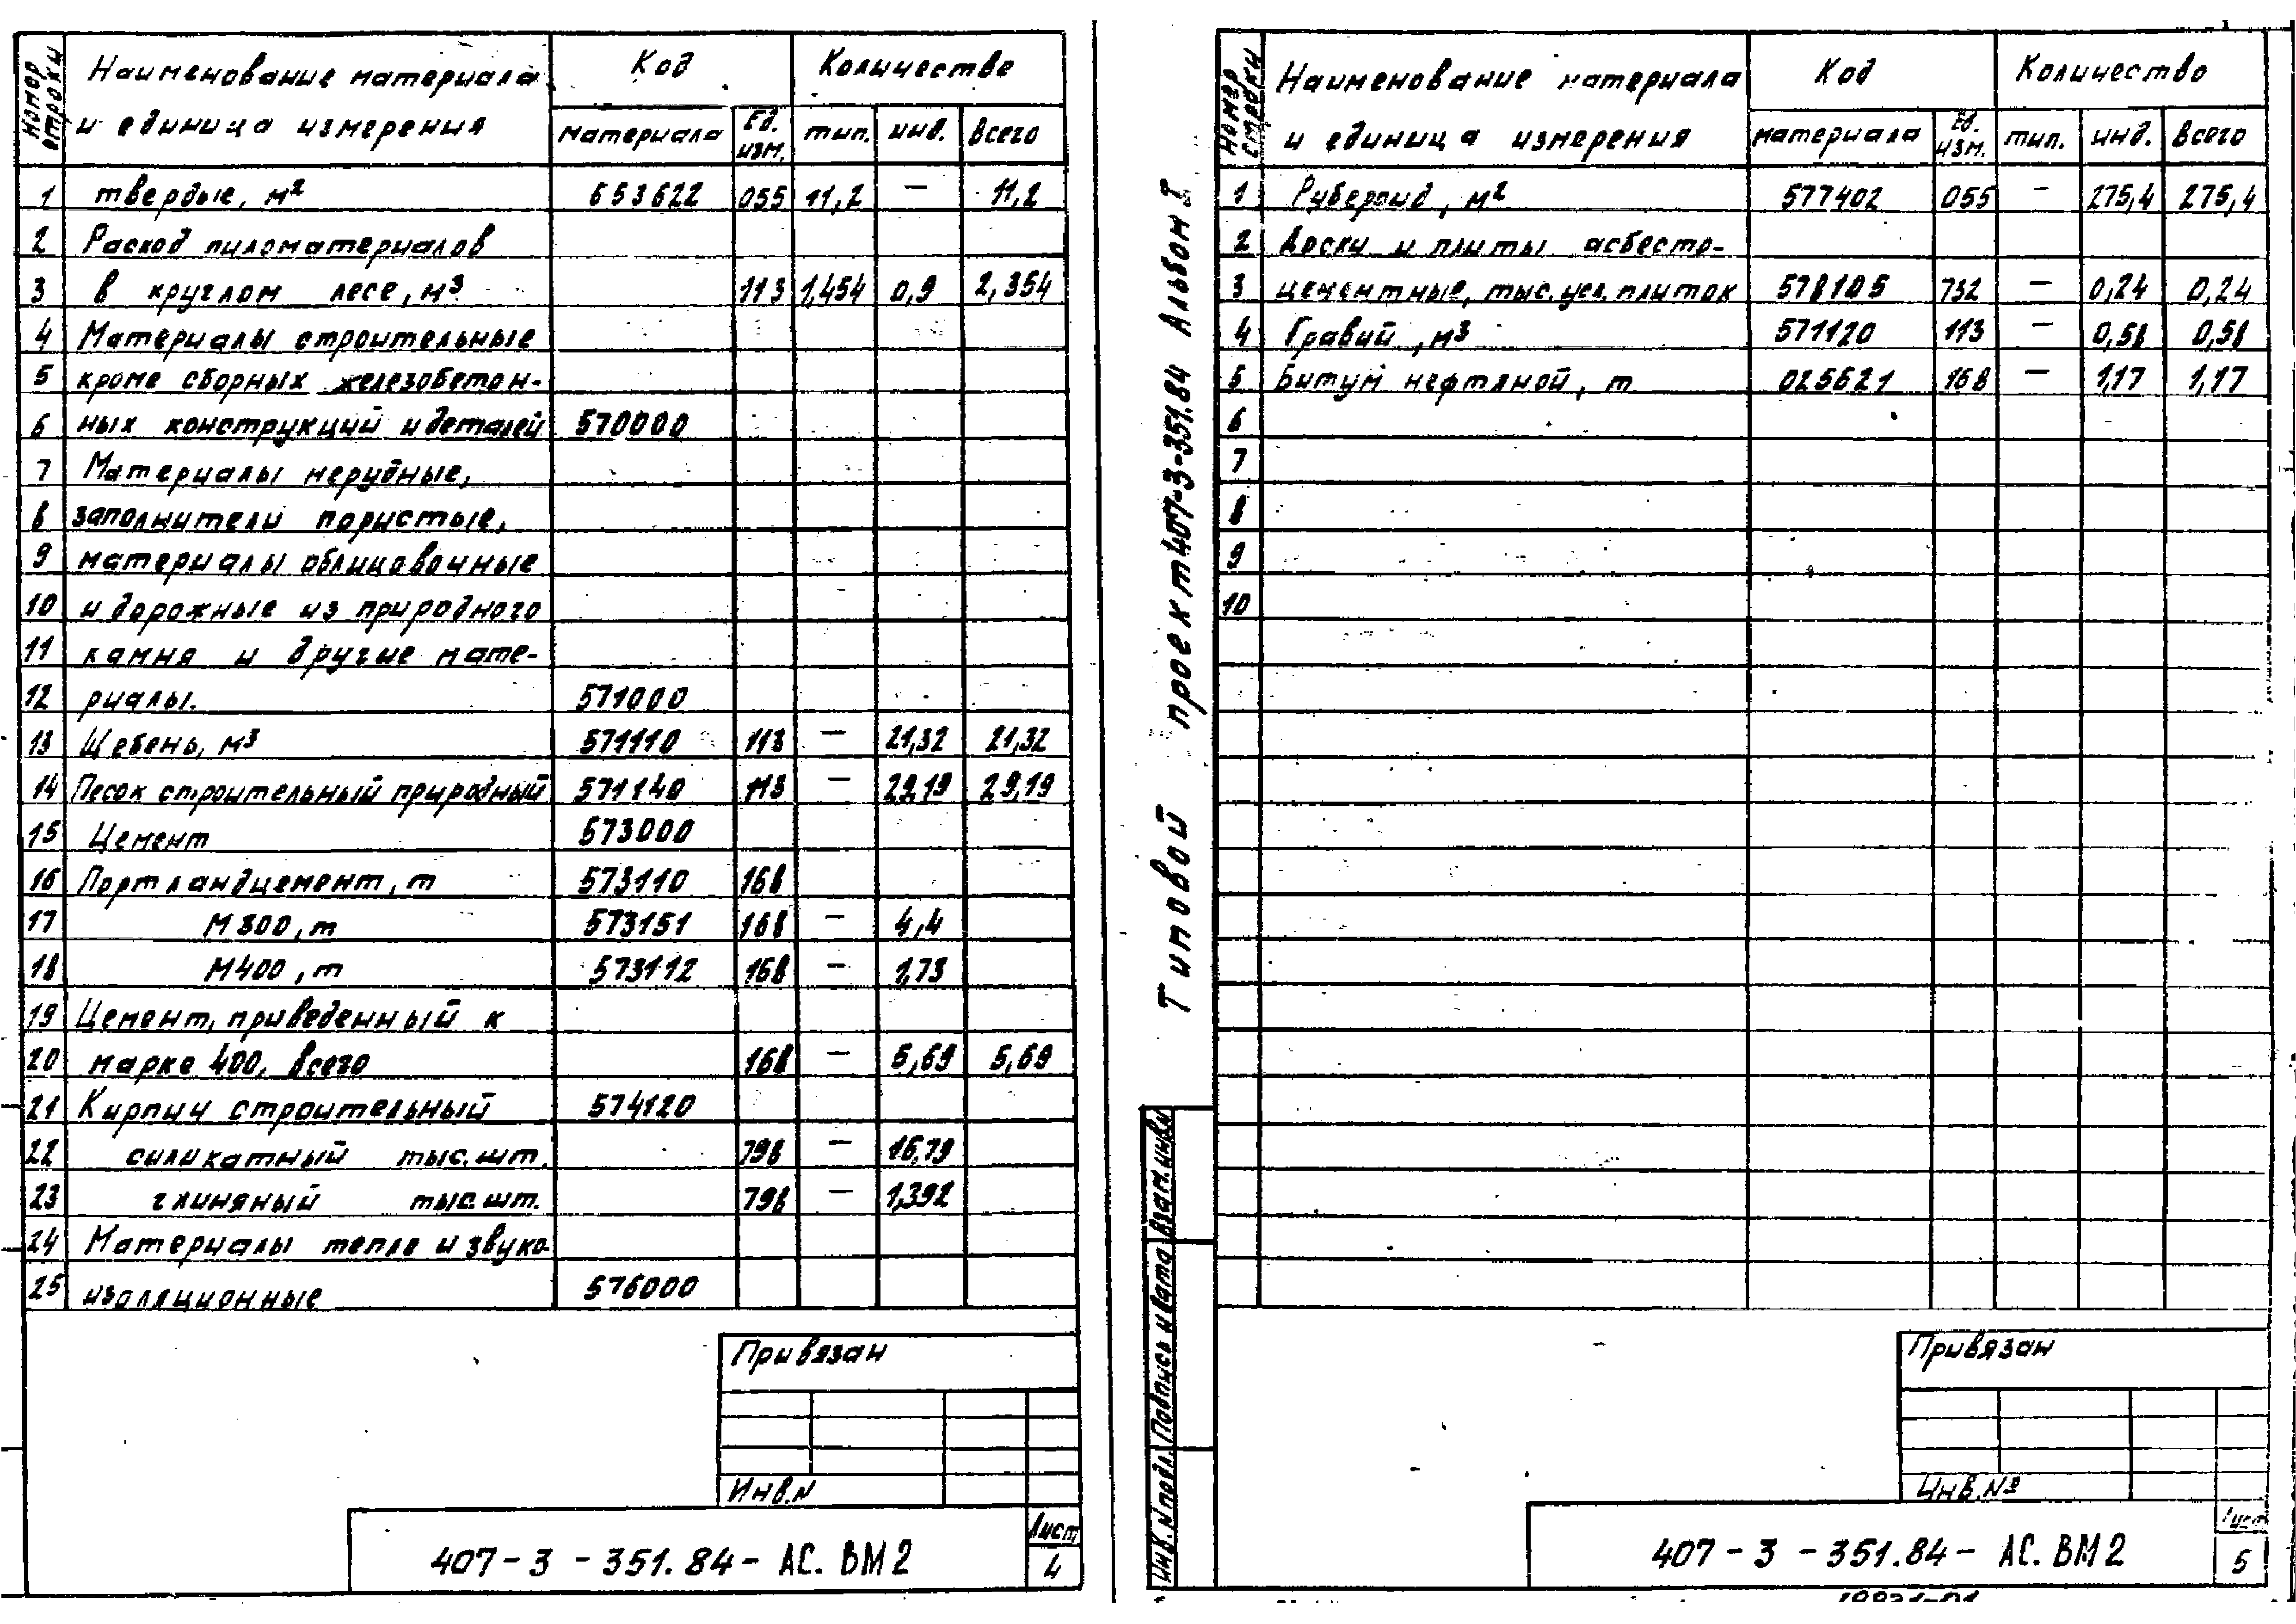 Номер строки | Наименование материала и единица измерения | Код | Количество
материала | Ед. изм. | тип. | инд. | Всего
1 твердые, м² 653622 055 11,2 — 11,2
2 Расход пиломатериалов
3 в круглом лесе, м³ 113 1,454 0,9 2,354
4 Материалы строительные
5 кроме сборных железобетон-
6 ных конструкций и деталей 570000
7 Материалы нерудные,
8 заполнители пористые,
9 материалы облицовочные
10 и дорожные из природного
11 камня и другие мате-
12 риалы. 571000
13 Щебень, м³ 571110 113 — 21,32 21,32
14 Песок строительный природный 571140 113 — 29,19 29,19
15 Цемент 573000
16 Портландцемент, т 573110 168
17 М300, т 573151 168 — 4,4
18 М400, т 573112 168 — 1,73
19 Цемент, приведенный к
20 марке 400, всего 168 — 5,69 5,69
21 Кирпич строительный 574120
22 силикатный тыс.шт. 798 — 16,79
23 глиняный тыс.шт. 798 — 1,392
24 Материалы тепло и звуко-
25 изоляционные 576000
Привязан
Инв.N
407-3-351.84- АС. ВМ2
Лист
4
Типовой проект 407-3-351.84 Альбом I
Взам.инв.N
Подпись и дата
Инв.N подл.
Номер строки | Наименование материала и единица измерения | Код | Количество
материала | Ед. изм. | тип. | инд. | Всего
1 Рубероид, м² 577402 055 — 275,4 275,4
2 Доски и плиты асбесто-
3 цементные, тыс. усл. плиток 578105 732 — 0,24 0,24
4 Гравий, м³ 571120 113 — 0,58 0,58
5 Битум нефтяной, т 025621 168 — 1,17 1,17
6
7
8
9
10
Привязан
Инв.№
407-3-351.84- АС. ВМ2
Лист
5